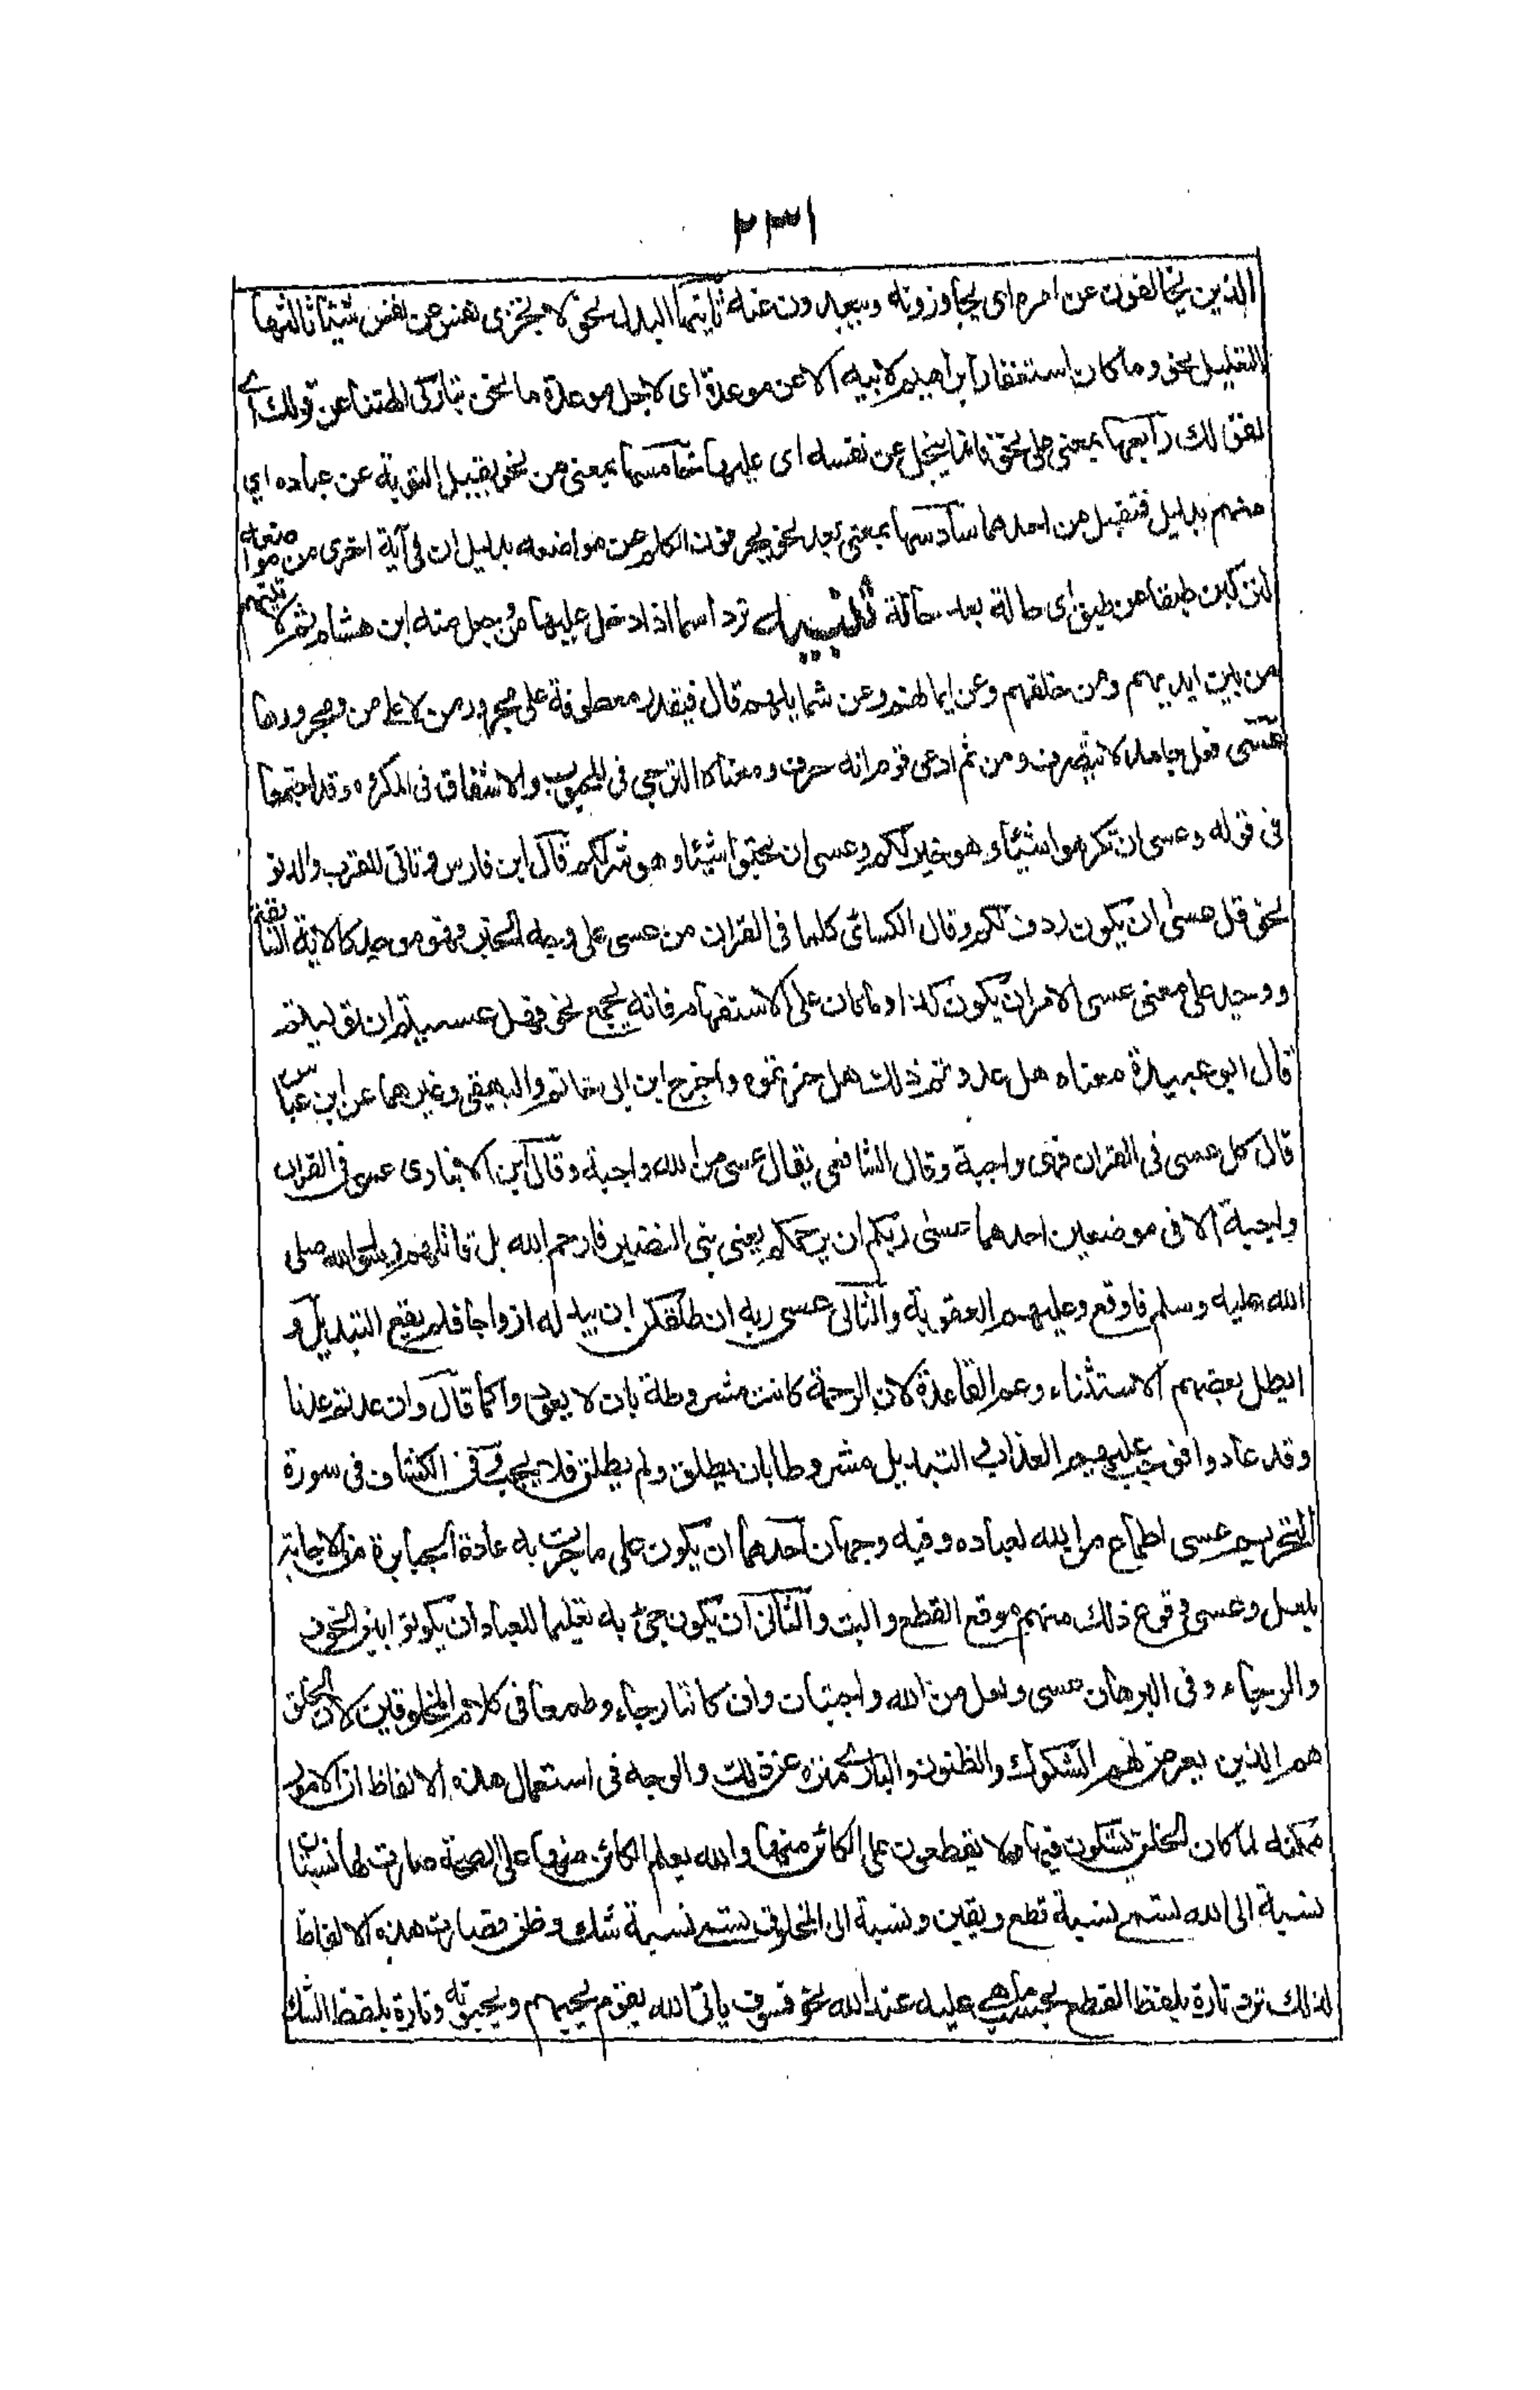 ٢٣١
الذين يخالفون عن امره اى يجاوزونه ويبعدون عنه ثانيها البدل نحو لا تجزى نفس عن نفس شيئا ثالثها
التعليل نحو وما كان استغفار ابراهيم لابيه الا عن موعدة اى لاجل موعدة ما نحن بتاركى الهتنا عن قولك اے
لقولك رابعها بمعنى على نحو فانما يبخل عن نفسه اى عليها خامسها بمعنى من نحو يقبل التوبة عن عباده اي
منهم بدليل فتقبل من احدهما سادسها بمعنى بعد نحو يحرفون الكلم عن مواضعه بدليل ان فى آية اخرى من بعد مواضعه
لتركبن طبقا عن طبق اى حالة بعد حالة تنبيه ترد اسما اذا دخل عليها من وجعل منه ابن هشام ثم لآتينهم
من بين ايديهم ومن خلفهم وعن ايمانهم وعن شمايلهم قال فيقدر معطوفة على مجرور من لا على من ومجرورها
عسى فعل جامد لا يتصرف ومن ثم ادعى قوم انه حرف ومعناه الترجي فى المحبوب والاشفاق فى المكروه وقد اجتمعا
فى قوله وعسى ان تكرهوا شيئا وهو خير لكم وعسى ان تحبوا شيئا وهو شر لكم قال ابن فارس وتاتى للقرب والدنو
نحو قل عسى ان يكون ردف لكم وقال الكسائى كلما فى القران من عسى على وجه الخبر فهو موحد كالاية السابقة
ووحد على معنى عسى الامر ان يكون كذا وما كان على الاستفهام فانه يجمع نحو فهل عسيتم ان توليتم
قال ابو عبيدة معناه هل عدوتم ذلك هل جزتموه واخرج ابن ابى حاتم والبهيقى وغيرهما عن ابن عباس
قال كل عسى فى القران فهى واجبة وقال الشافعى يقال عسى من الله واجبة وقال ابن الانبارى عسى فى القران
واجبة الا فى موضعين احدهما عسى ربكم ان يرحمكم يعنى بنى النضير فما رحمهم الله بل قاتلهم رسول الله صلى
الله عليه وسلم فاوقع وعليهم العقوبة والثانى عسى ربه ان طلقكن ان يبدله ازواجا فلم يقع التبديل و
ابطل بعضهم الاستثناء وعم القاعدة لان الرحمة كانت مشروطة بان لا يعودوا كما قال وان عدتم عدنا
وقد عادوا فوجب عليهم العذاب والتبديل مشروطا بان يطلق ولم يطلق فلا يجب وفى الكشاف فى سورة
التحريم عسى اطماع من الله لعباده وفيه وجهان احدهما ان يكون على ما جرت به عادة الجبابرة من الاجابة
بلعل وعسى ووقوع ذلك منهم موقع القطع والبت والثانى ان يكون جئ به تعليما للعباد ان يكونوا بين الخوف
والرجاء وفى البرهان عسى ولعل من الله واجبتان وان كانتا رجاء وطمعا فى كلام المخلوقين لان الخلق
هم الذين يعرض لهم الشكوك والظنون والبارى منزه عن ذلك والوجه فى استعمال هذه الالفاظ ان الامور
ممكنه لما كان الخلق يشكون فيها ولا يقطعون على الكائن منها والله يعلم الكائن منها على الصحة صارت لها نسبتان
نسبة الى الله تسمى نسبة قطع ويقين ونسبة الى المخلوق تسمى نسبة شك وظن فصارت هذه الالفاظ
لذلك ترد تارة بلفظ القطع بحسب ما هي عليه عند الله نحو فسوف ياتى الله بقوم يحبهم ويحبونه وتارة بلفظ الشك